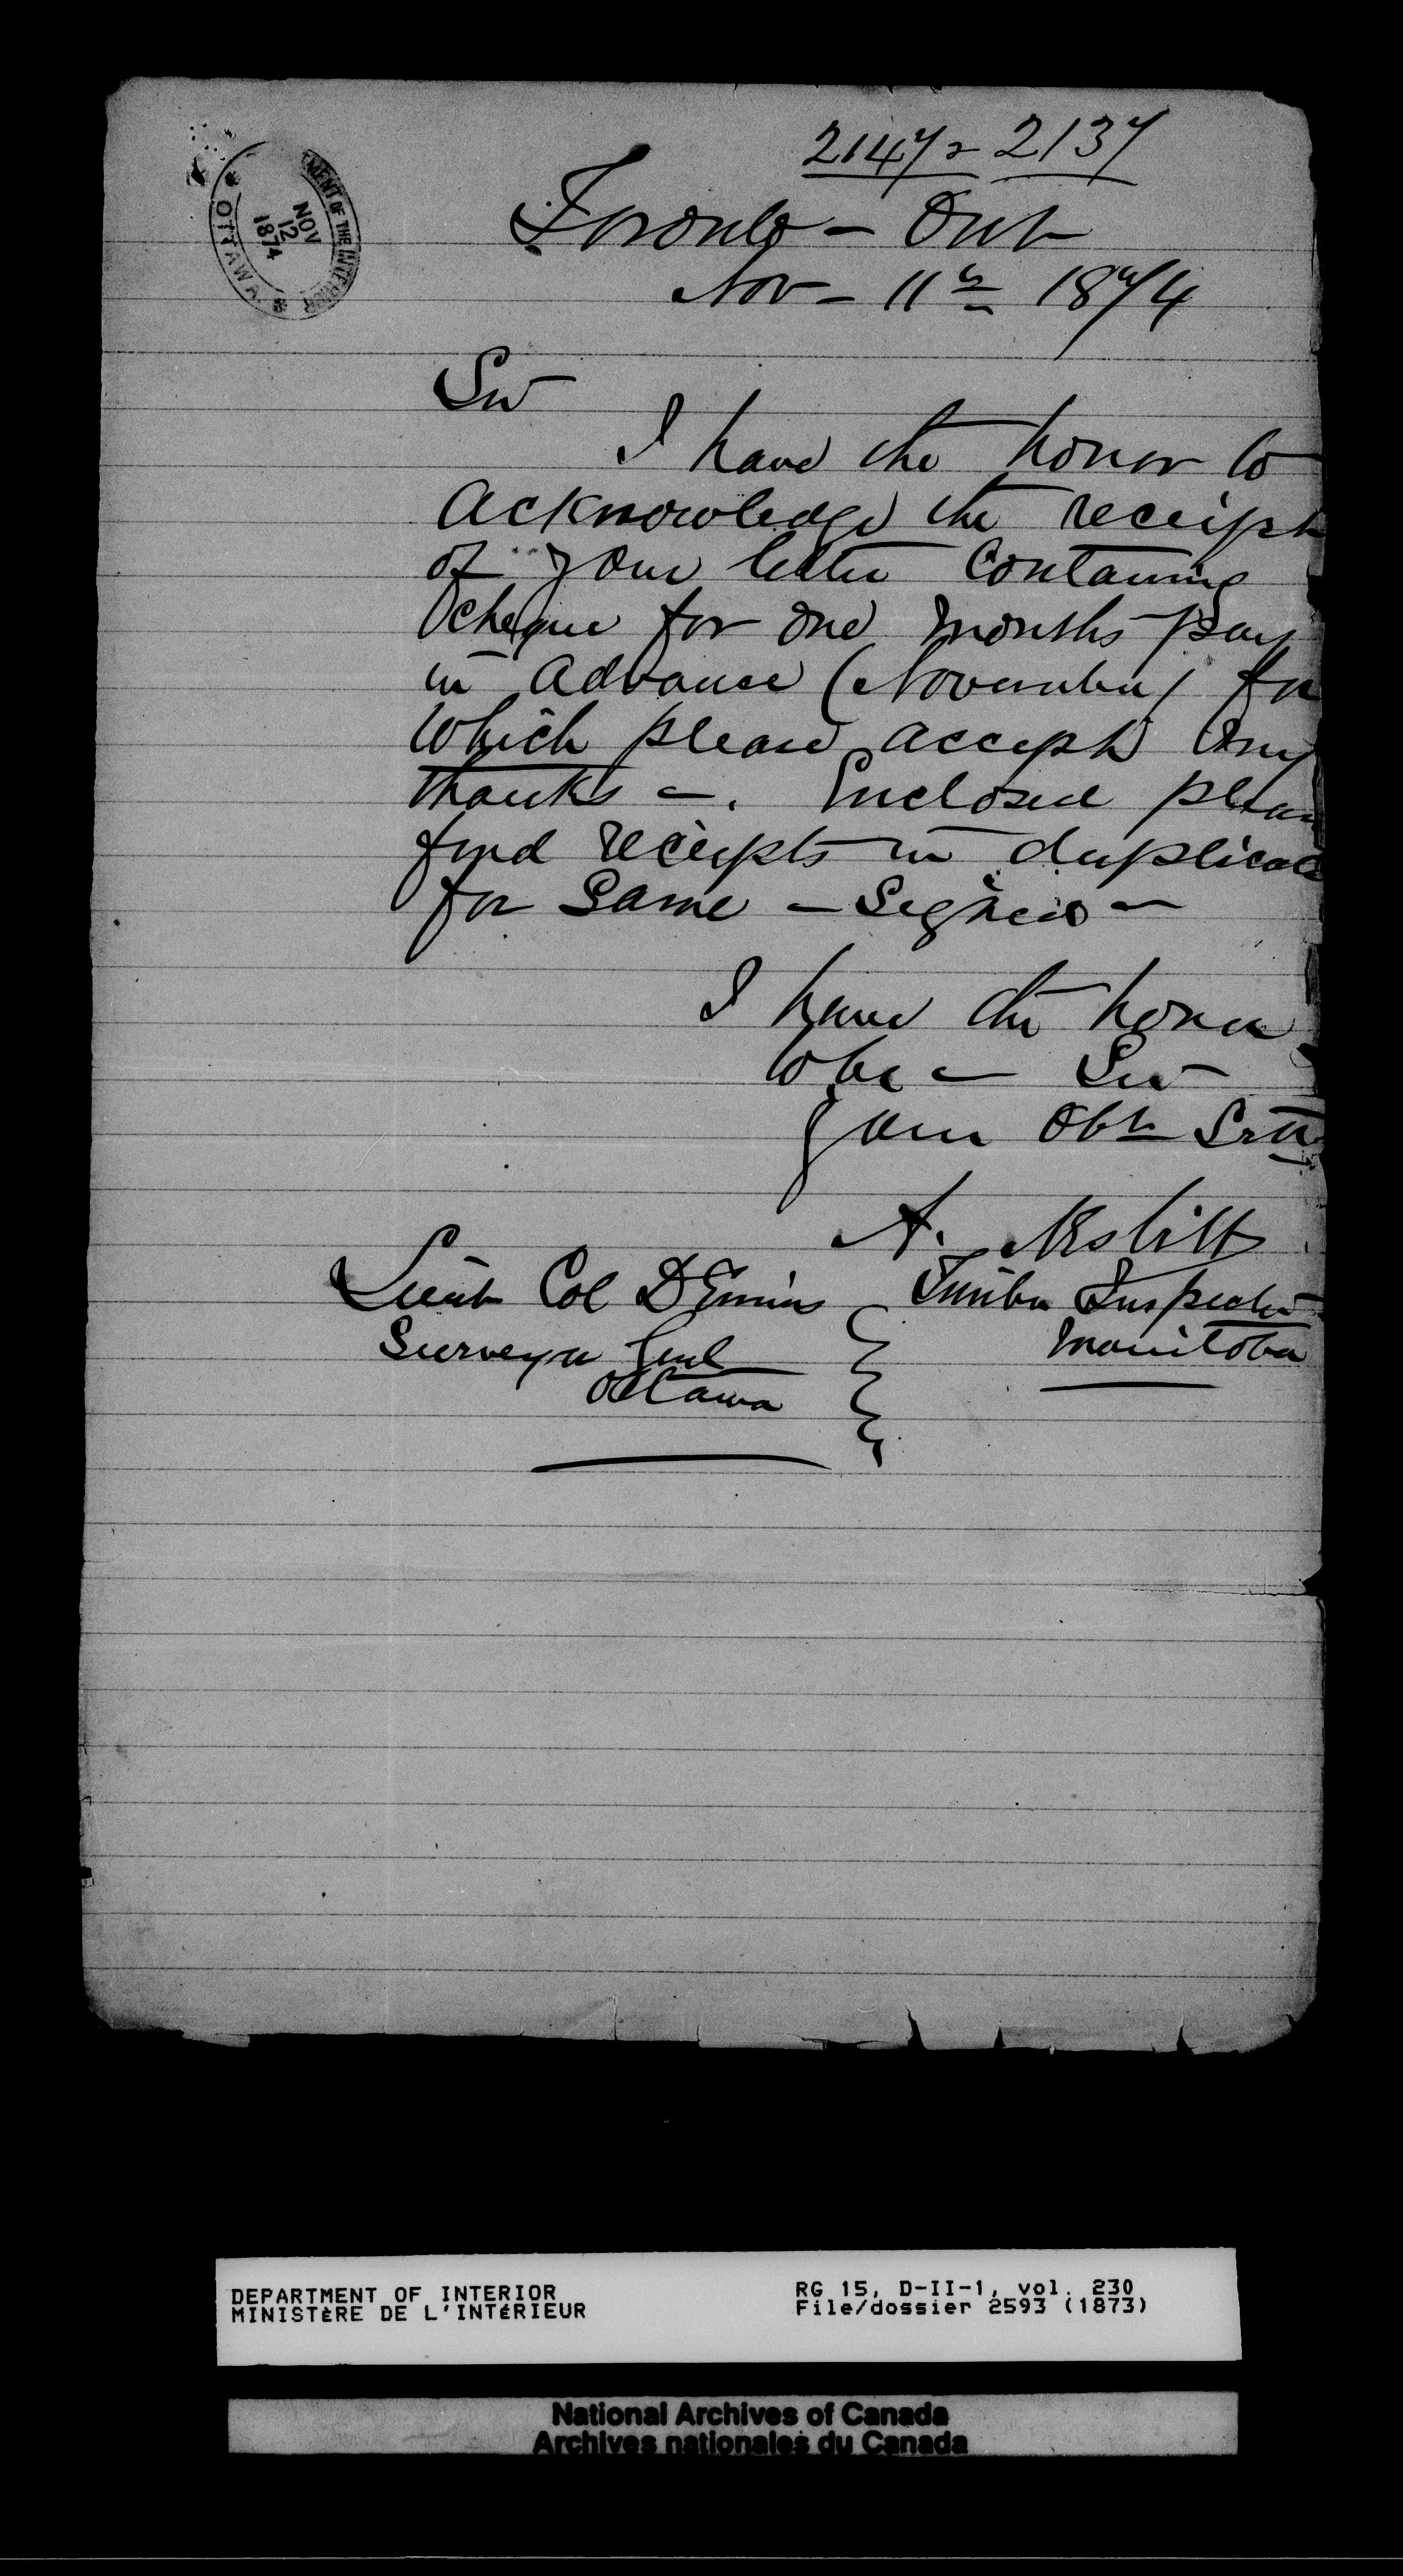 2147 2137
MENT OF THE INTERIOR
NOV
12
1874
OTTAWA
Toronto - Ont
Nov - 11th 1874
Sir
I have the honor to
acknowledge the receipt
of your letter containing
cheque for one months pay
in advance (November) for
which please accept my
thanks -. Enclosed please
find receipts in duplicate
for same - signed -
I have the honor
to be - Sir
your Obt Srvt
A. Nesbitt
Timber Inspector
Manitoba
Lieut Col Dennis
Surveyor Genl
Ottawa
DEPARTMENT OF INTERIOR
MINISTÈRE DE L'INTÉRIEUR
RG 15, D-II-1, vol. 230
File/dossier 2593 (1873)
National Archives of Canada
Archives nationales du Canada